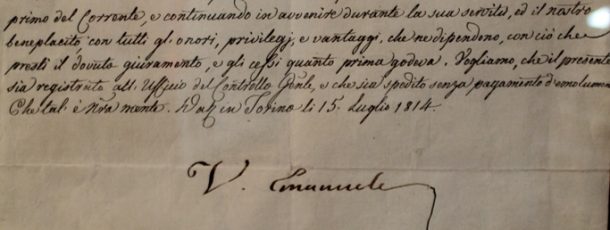 primo del Corrente, e continuando in avvenire durante la sua servitù, ed il nostro
beneplacito, con tutti gl'onori, privilegj, e vantaggi, che ne dipendono, con ciò che
presti il dovuto giuramento, e gli cessi quanto prima godeva. Vogliamo, che il presente
sia registrato all'Ufficio del Controllo Gnle, e che sia spedito senza pagamento d'emolumen
Che tal è Nra mente. Dat. in Torino li 15. Luglio 1814.
V. Emanuele